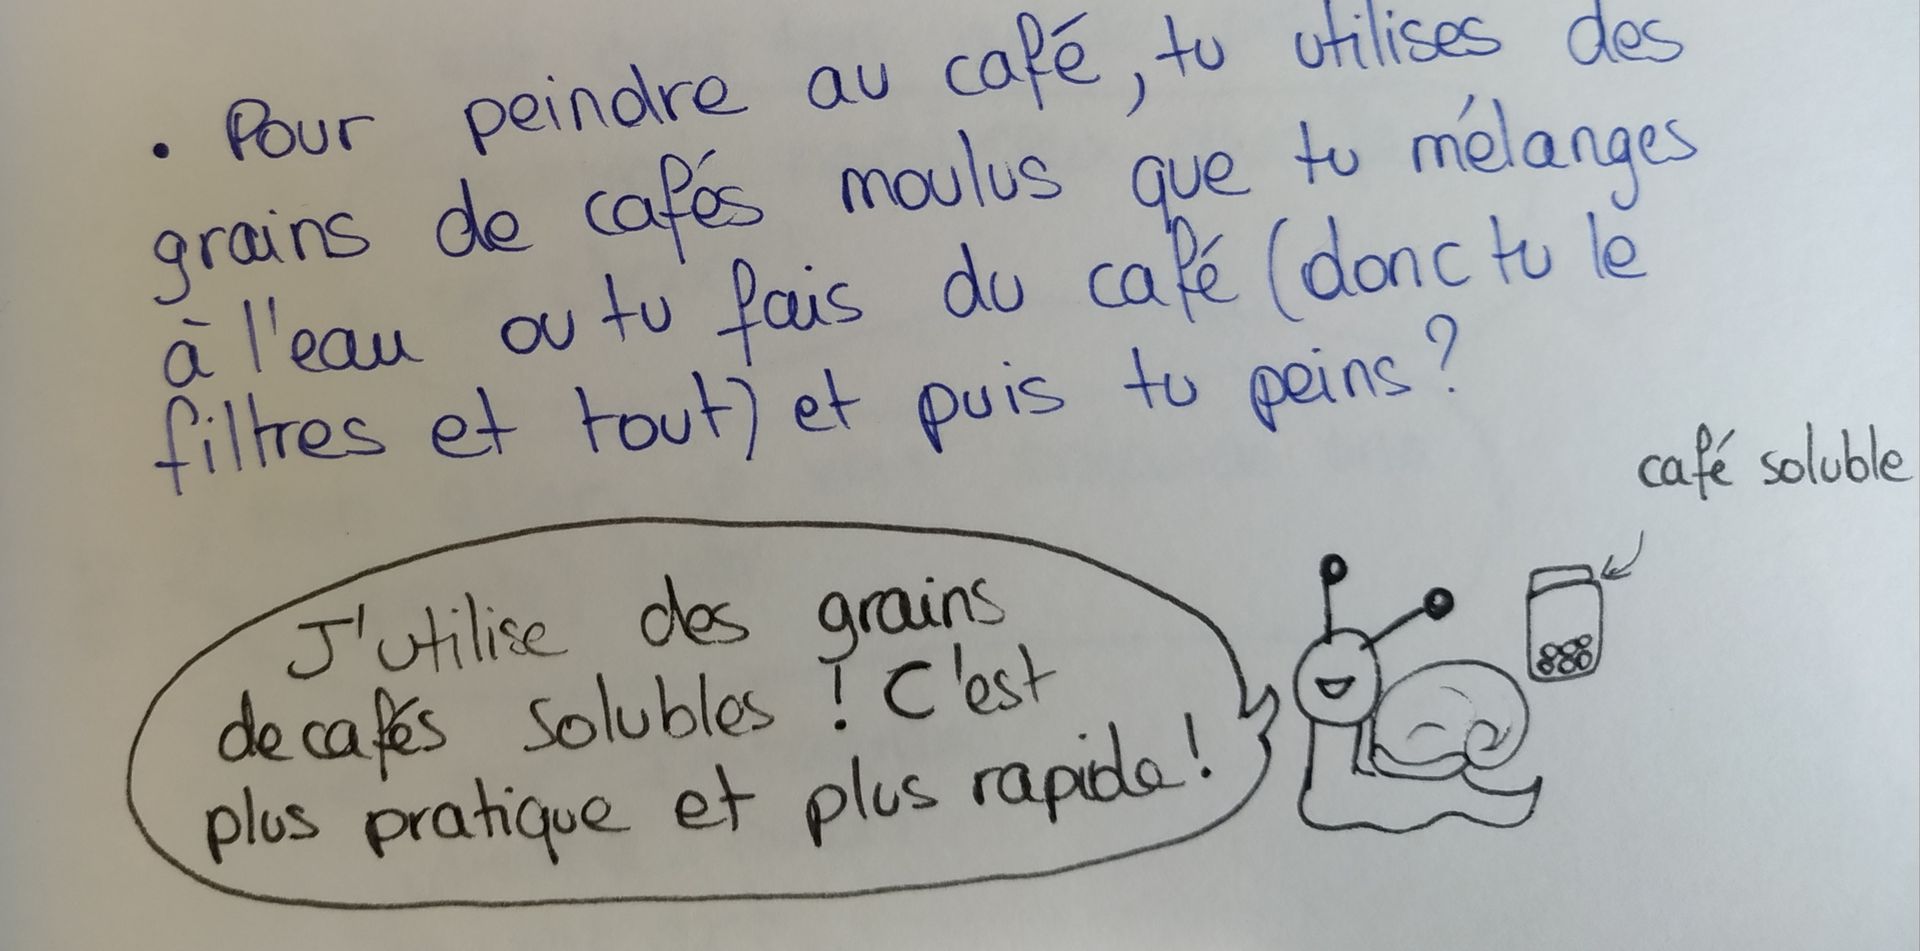 • Pour peindre au café, tu utilises des
grains de cafés moulus que tu mélanges
à l'eau ou tu fais du café (donc tu le
filtres et tout) et puis tu peins ?
café soluble
J'utilise des grains
de cafés solubles ! C'est
plus pratique et plus rapide !